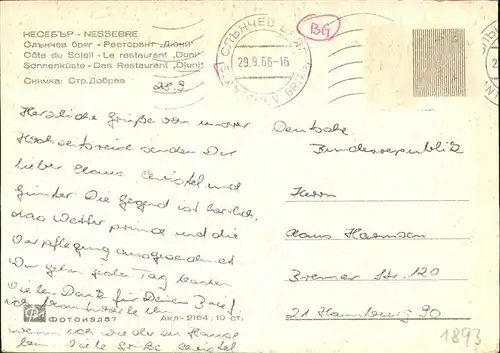 НЕСЕБЪР - NESSEBRE
Слънчев бряг - Ресторант „Дюни"
Côte du Soleil - Le restaurant „Duni"
Sonnenküste - Das Restaurant „Djuni"
Снимка: Стр. Добрев
25.9
СЛЪНЧЕВ БРЯГ
29.9.66-16
BG
Herzliche Grüße von unserer
Hochzeitsreise senden Dir
lieber Claus Christel und
Günter. Die Gegend ist herrlich,
das Wetter prima und die
Verpflegung ausgezeichnet
Wir gehen jeden Tag baden
Vielen Dank für Deinen Brief,
ich beantworte ihn
wenn ich wieder zu Hause
bin. Viele Grüße Christel
Deutsche
Bundesrepublik
Herrn
Claus Harmsen
Bremer Str. 120
21 Hamburg 90
ФОТОИЗДАТ
АКЛ-2164 / 10 ст.
1893